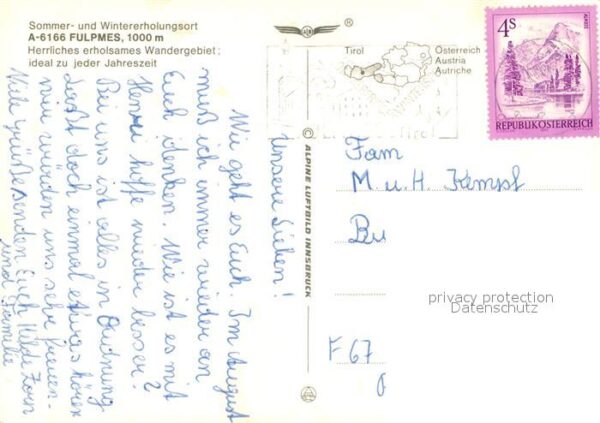 Sommer- und Wintererholungsort
A-6166 FULPMES, 1000 m
Herrliches erholsames Wandergebiet;
ideal zu jeder Jahreszeit
®
Tirol
Österreich
Austria
Autriche
4S
REPUBLIK ÖSTERREICH
© ALPINE LUFTBILD INNSBRUCK
Unsere Lieben!
Wie geht es Euch. Im August
muß ich immer wieder an
Euch denken. Wie ist es mit
hoffe wieder besser?
Bei uns ist alles in Ordnung
Laßt doch einmal etwas hören
wir würden uns sehr freuen.
Viele Grüße senden Euch Hilde Zorn
und Familie
Fam
M. u. H. Kempf
Bu
F 67
privacy protection
Datenschutz